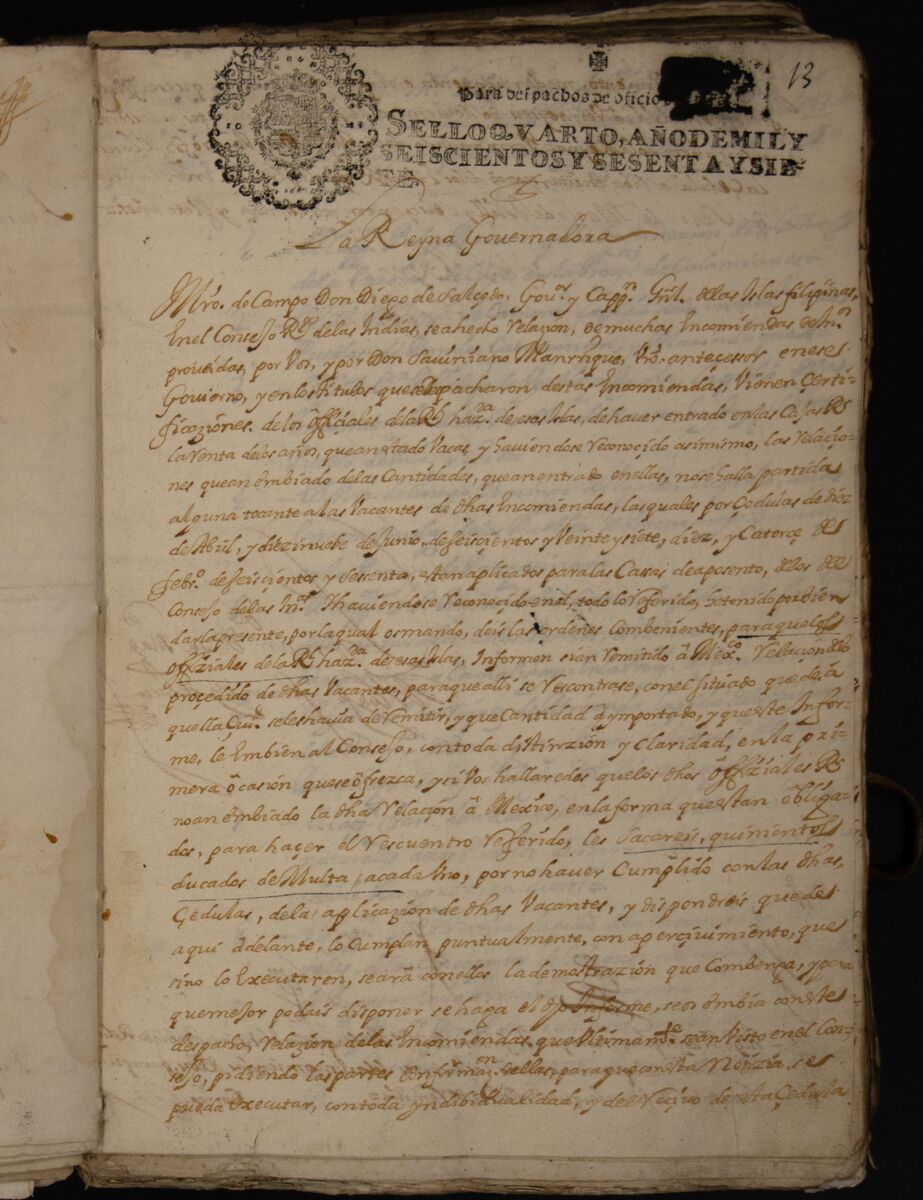 13
Para despachos de oficio
SELLO QVARTO, AÑO DE MIL Y
SEISCIENTOS Y SESENTA Y SIE
TE.
La Reyna Governadora
Mro. de Campo Don Diego de Salcedo, Gouor. y Cappn. Grl. de las Islas filipinas,
En el Consejo Rl. de las Indias, se a hecho Relazion, de muchas Encomiendas de Inos.
proueidas, por Vos, y por Don Sauiniano Manrrique, Vro. antecessor en ese
Gouierno, y en los titulos que se despacharon destas Encomiendas, Vienen çerti-
ficaziones. de los offiçiales de la Rl. hazda. de esas Islas, de haver entrado en las Cajas Rs.
la Renta de los años, que an estado Vacas, y hauiendose Reconoçido asimismo, las Relacio-
nes que an embiado de las Cantidades, que an entrado en ellas, no se halla partida
alguna tocante a las Vacantes de dhas Encomiendas, las quales por Çedulas de diez
de Abril, y diez i nuebe de Junio, de seisçientos y Veinte y siete, diez, y Catorçe de
febro. de seisçientos y sesenta, estan aplicados para las Cassas de aposento, de los del
Consejo de las Inas. I hauiendose Reconoçido en el, todo lo Referido, he tenido por bien
dar la presente, por la qual os mando, deis las ordenes Combenientes, para que los
offiziales de la Rl. hazda. de esas Islas, Informen si an Remitido â Mexco. Relacion de lo
proçedido de dhas Vacantes, para que alli se Rescontrase, con el situado que de, a
quella Çiud. se les hauia de Remitir, y que Cantidad â ymportado, y que este Infor-
me, le Embien al Consejo, con toda distinzión y claridad, en la pri-
mera ôcasión que se ôfrezca, y si Vos hallaredes que los dhos ôffiziales Rs.
no an embiado la dha Relaçión â Mexico, en la forma que estan ôbliga-
dos, para haçer el Rescuentro Refferido, les Sacareis, quinientos
ducados de Multa, a cada Vno, por no hauer Cumplido con las dhas,
Çedulas, de la aplicazión de dhas Vacantes, y dispondreis que de
aqui âdelante, lo Cumplan puntualmente, con aperçiuimiento, que
sino lo Executaren, se arâ con ellos la demostrazión que Combenga, y para
que mejor podais disponer se haga el dho Informe, se os êmbia con este
despacho, Relazión de las Encomiendas, que Vltimamte. se an Visto en el Con-
sejo, pidiendo las partes confirmaon. dellas, para que con esta Notizia, se
pueda Executar, con toda yndibidualidad, y del Reçiuo de esta Çedula